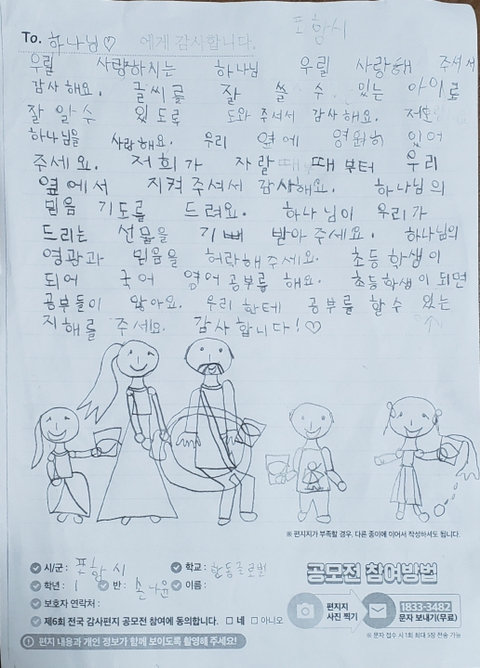 포항시
To. 하나님♡ 에게 감사합니다.
우릴 사랑하시는 하나님 우릴 사랑해 주셔서
감사해요. 글씨를 잘 쓸 수 있는 아이로
잘 알 수 있도록 도와 주셔서 감사해요. 저는
하나님을 사랑해요. 우리 옆에 영원히 있어
주세요. 저희가 자랄 때 때부터 우리
옆에서 지켜주셔서 감사해요. 하나님의
믿음 기도를 드려요. 하나님이 우리가
드리는 선물을 기뻐 받아주세요. 하나님의
영광과 믿음을 허락해주세요. 초등학생이
되어 국어 영어 공부를 해요. 초등학생이 되면
공부들이 많아요. 우리한테 공부를 할 수 있는
지혜를 주세요. 감사합니다!♡
※ 편지지가 부족할 경우, 다른 종이에 이어서 작성하셔도 됩니다.
시/군 : 포항시 학교 : 한동글로벌
학년 : 1 반 : 손나윤 이름 :
보호자 연락처 :
제6회 전국 감사편지 공모전 참여에 동의합니다. □ 네 □ 아니오
편지 내용과 개인 정보가 함께 보이도록 촬영해 주세요!
공모전 참여방법
편지지 사진 찍기
1833-3482
문자 보내기(무료)
※ 문자 접수 시 1회 최대 3장 전송 가능